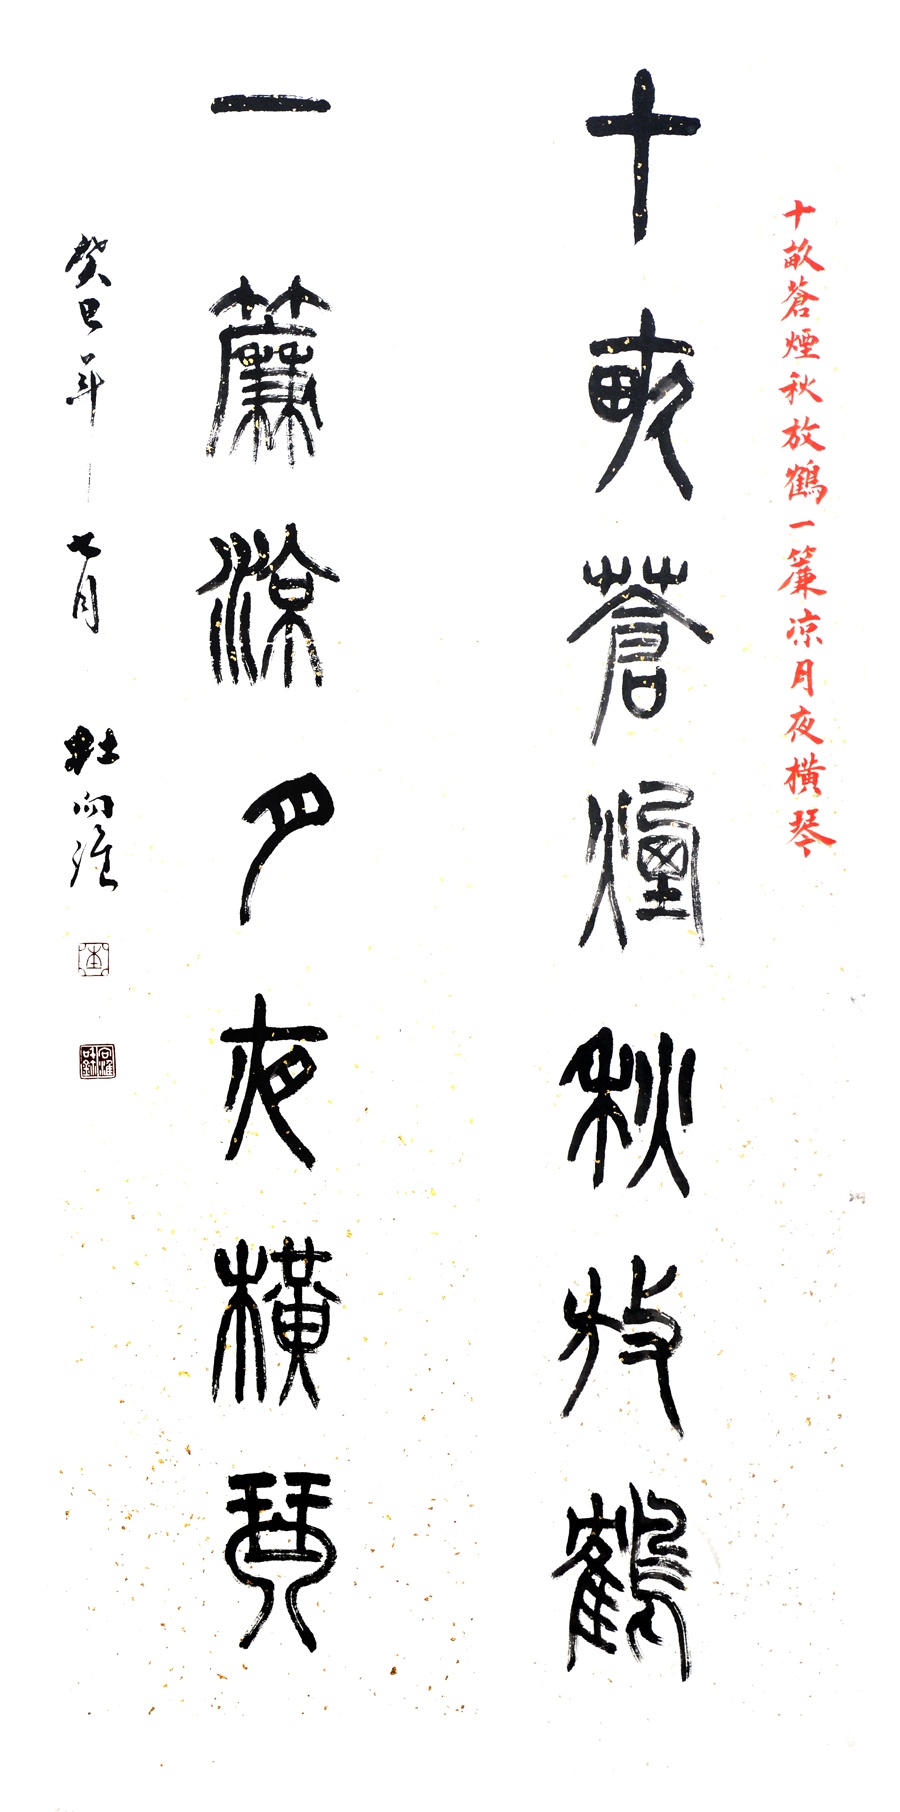 十畝蒼煙秋放鶴一簾凉月夜橫琴
十畝蒼煙秋放鶴
一簾涼月夜橫琴
癸巳年七月 杜向維